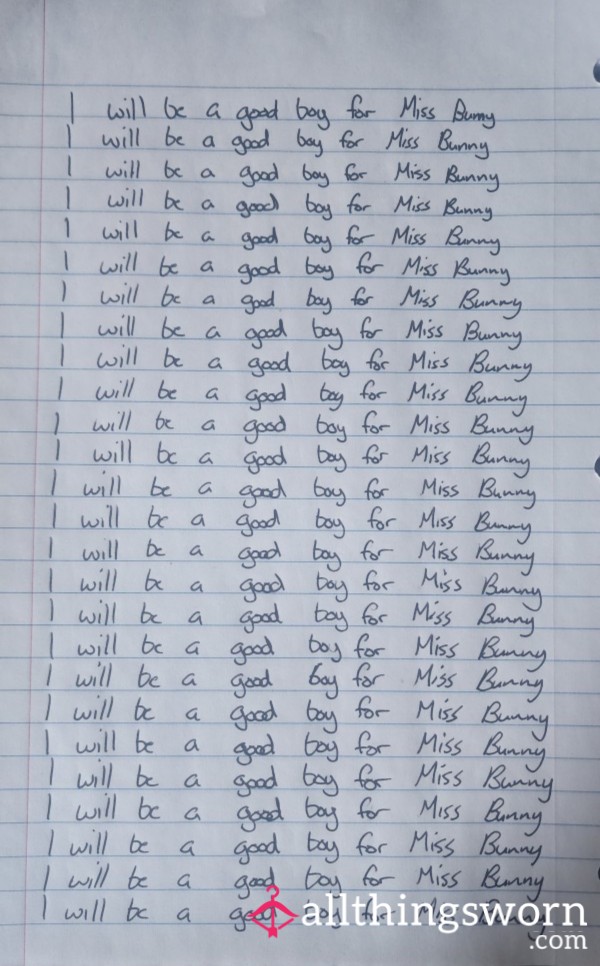 I will be a good boy for Miss Bunny
I will be a good boy for Miss Bunny
I will be a good boy for Miss Bunny
I will be a good boy for Miss Bunny
I will be a good boy for Miss Bunny
I will be a good boy for Miss Bunny
I will be a good boy for Miss Bunny
I will be a good boy for Miss Bunny
I will be a good boy for Miss Bunny
I will be a good boy for Miss Bunny
I will be a good boy for Miss Bunny
I will be a good boy for Miss Bunny
I will be a good boy for Miss Bunny
I will be a good boy for Miss Bunny
I will be a good boy for Miss Bunny
I will be a good boy for Miss Bunny
I will be a good boy for Miss Bunny
I will be a good boy for Miss Bunny
I will be a good boy for Miss Bunny
I will be a good boy for Miss Bunny
I will be a good boy for Miss Bunny
I will be a good boy for Miss Bunny
I will be a good boy for Miss Bunny
I will be a good boy for Miss Bunny
I will be a good boy for Miss Bunny
I will be a
allthingsworn
.com